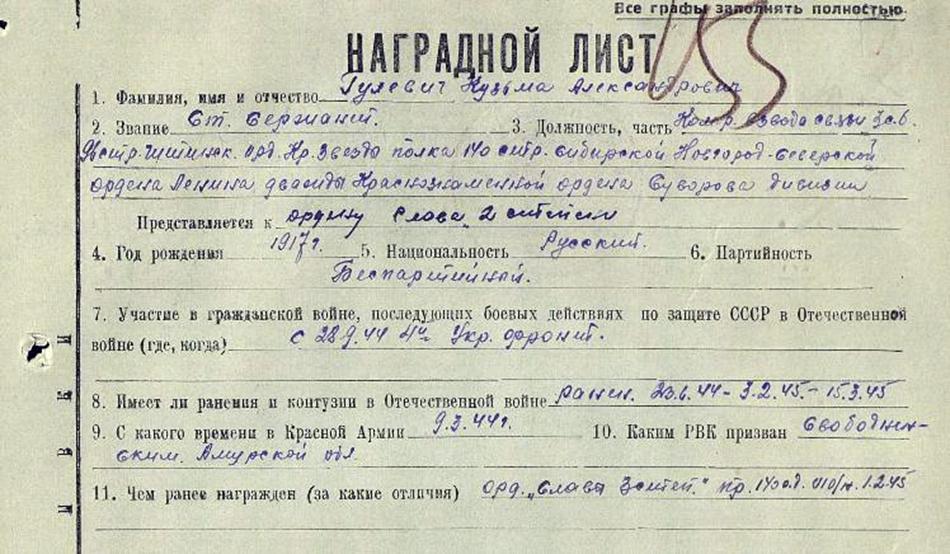 Все графы заполнять полностью
НАГРАДНОЙ ЛИСТ
1. Фамилия, имя и отчество Гулевич Кузьма Александрович
2. Звание Ст. Сержант. 3. Должность, часть Ком-р взвода связи 3 с.б.
стр. орд. Кр. Звезда полка 140 стр. Сибирской Новгород-Северской
ордена Ленина дважды Краснознаменной ордена Суворова дивизии
Представляется к ордену "Слава" 2 степени
4. Год рождения 1917 г. 5. Национальность Русский. 6. Партийность
Беспартийный.
7. Участие в гражданской войне, последующих боевых действиях по защите СССР в Отечественной
войне (где, когда) с 28.9.44 4й Укр. фронт.
8. Имеет ли ранения и контузии в Отечественной войне ранен. 3.2.45 - 15.3.45
9. С какого времени в Красной Армии 9.3.44г. 10. Каким РВК призван Свободнен-
ским. Амурской обл.
11. Чем ранее награжден (за какие отличия) орд. "Слава 3 степ." пр. 140 с.д. 1.2.45